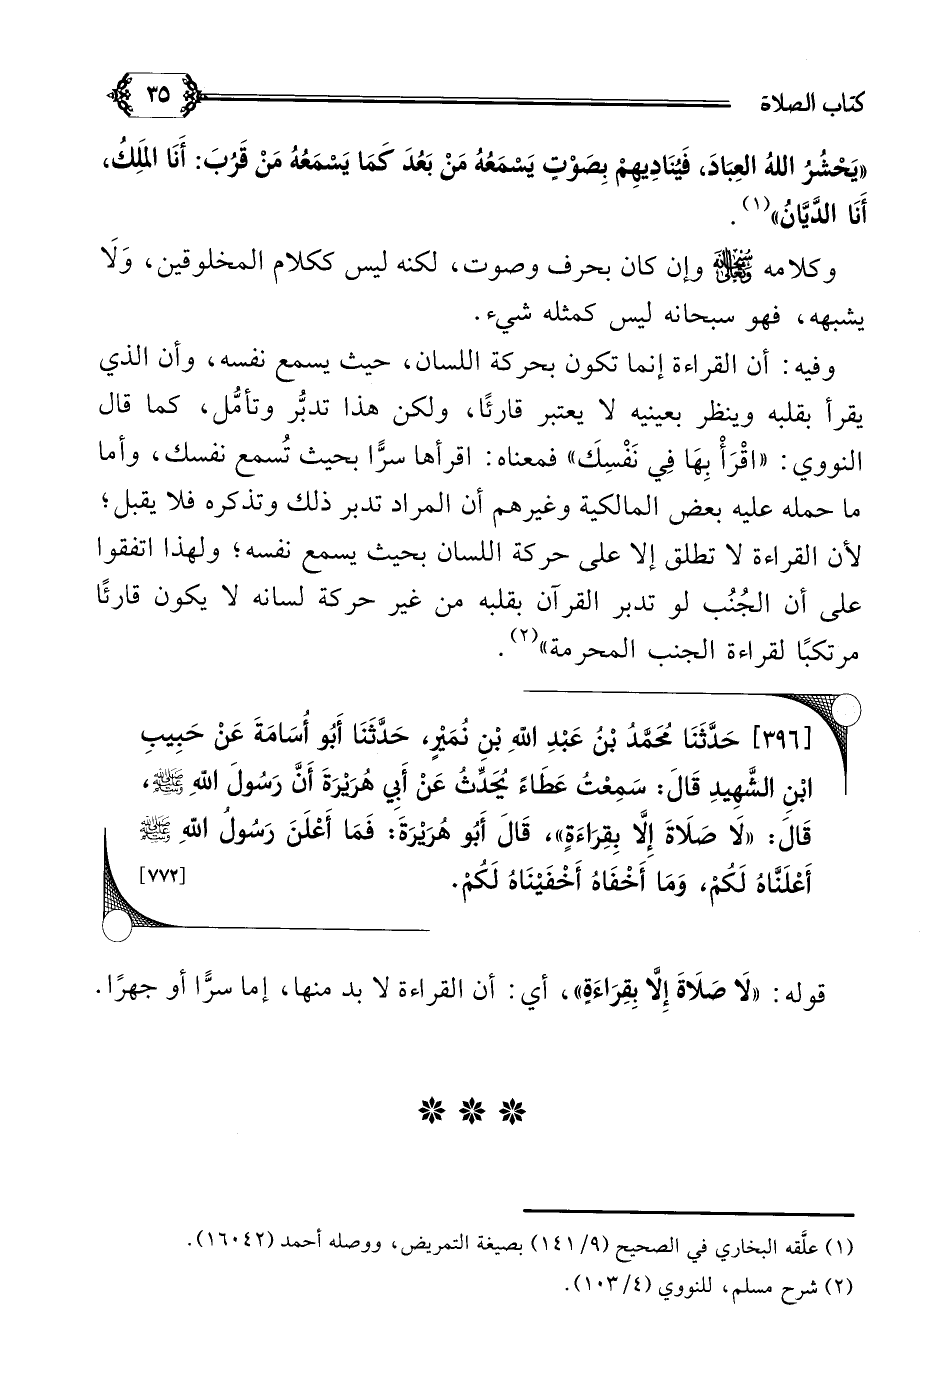 كتاب الصلاة
٣٥
«يَحْشُرُ اللهُ العِبَادَ، فَيُنَادِيهِمْ بِصَوْتٍ يَسْمَعُهُ مَنْ بَعُدَ كَمَا يَسْمَعُهُ مَنْ قَرُبَ: أَنَا المَلِكُ،
أَنَا الدَّيَّانُ»(١).
وكلامه ﷾ وإن كان بحرف وصوت، لكنه ليس ككلام المخلوقين، وَلَا
يشبهه، فهو سبحانه ليس كمثله شيء.
وفيه: أن القراءة إنما تكون بحركة اللسان، حيث يسمع نفسه، وأن الذي
يقرأ بقلبه وينظر بعينيه لا يعتبر قارئًا، ولكن هذا تدبُّر وتأمُّل، كما قال
النووي: «اقْرَأْ بِهَا فِي نَفْسِكَ» فمعناه: اقرأها سرًّا بحيث تُسمع نفسك، وأما
ما حمله عليه بعض المالكية وغيرهم أن المراد تدبر ذلك وتذكره فلا يقبل؛
لأن القراءة لا تطلق إلا على حركة اللسان بحيث يسمع نفسه؛ ولهذا اتفقوا
على أن الجُنُب لو تدبر القرآن بقلبه من غير حركة لسانه لا يكون قارئًا
مرتكبًا لقراءة الجنب المحرمة»(٢).
[٣٩٦] حَدَّثَنَا مُحَمَّدُ بْنُ عَبْدِ اللهِ بْنِ نُمَيْرٍ، حَدَّثَنَا أَبُو أُسَامَةَ عَنْ حَبِيبِ
ابْنِ الشَّهِيدِ قَالَ: سَمِعْتُ عَطَاءً يُحَدِّثُ عَنْ أَبِي هُرَيْرَةَ أَنَّ رَسُولَ اللهِ ﷺ،
قَالَ: «لَا صَلَاةَ إِلَّا بِقِرَاءَةٍ»، قَالَ أَبُو هُرَيْرَةَ: فَمَا أَعْلَنَ رَسُولُ اللهِ ﷺ
أَعْلَنَّاهُ لَكُمْ، وَمَا أَخْفَاهُ أَخْفَيْنَاهُ لَكُمْ. [٧٧٢]
قوله: «لَا صَلَاةَ إِلَّا بِقِرَاءَةٍ»، أي: أن القراءة لا بد منها، إما سرًّا أو جهرًا.
(١) علَّقه البخاري في الصحيح (٩/ ١٤١) بصيغة التمريض، ووصله أحمد (١٦٠٤٢).
(٢) شرح مسلم، للنووي (٤/ ١٠٣).